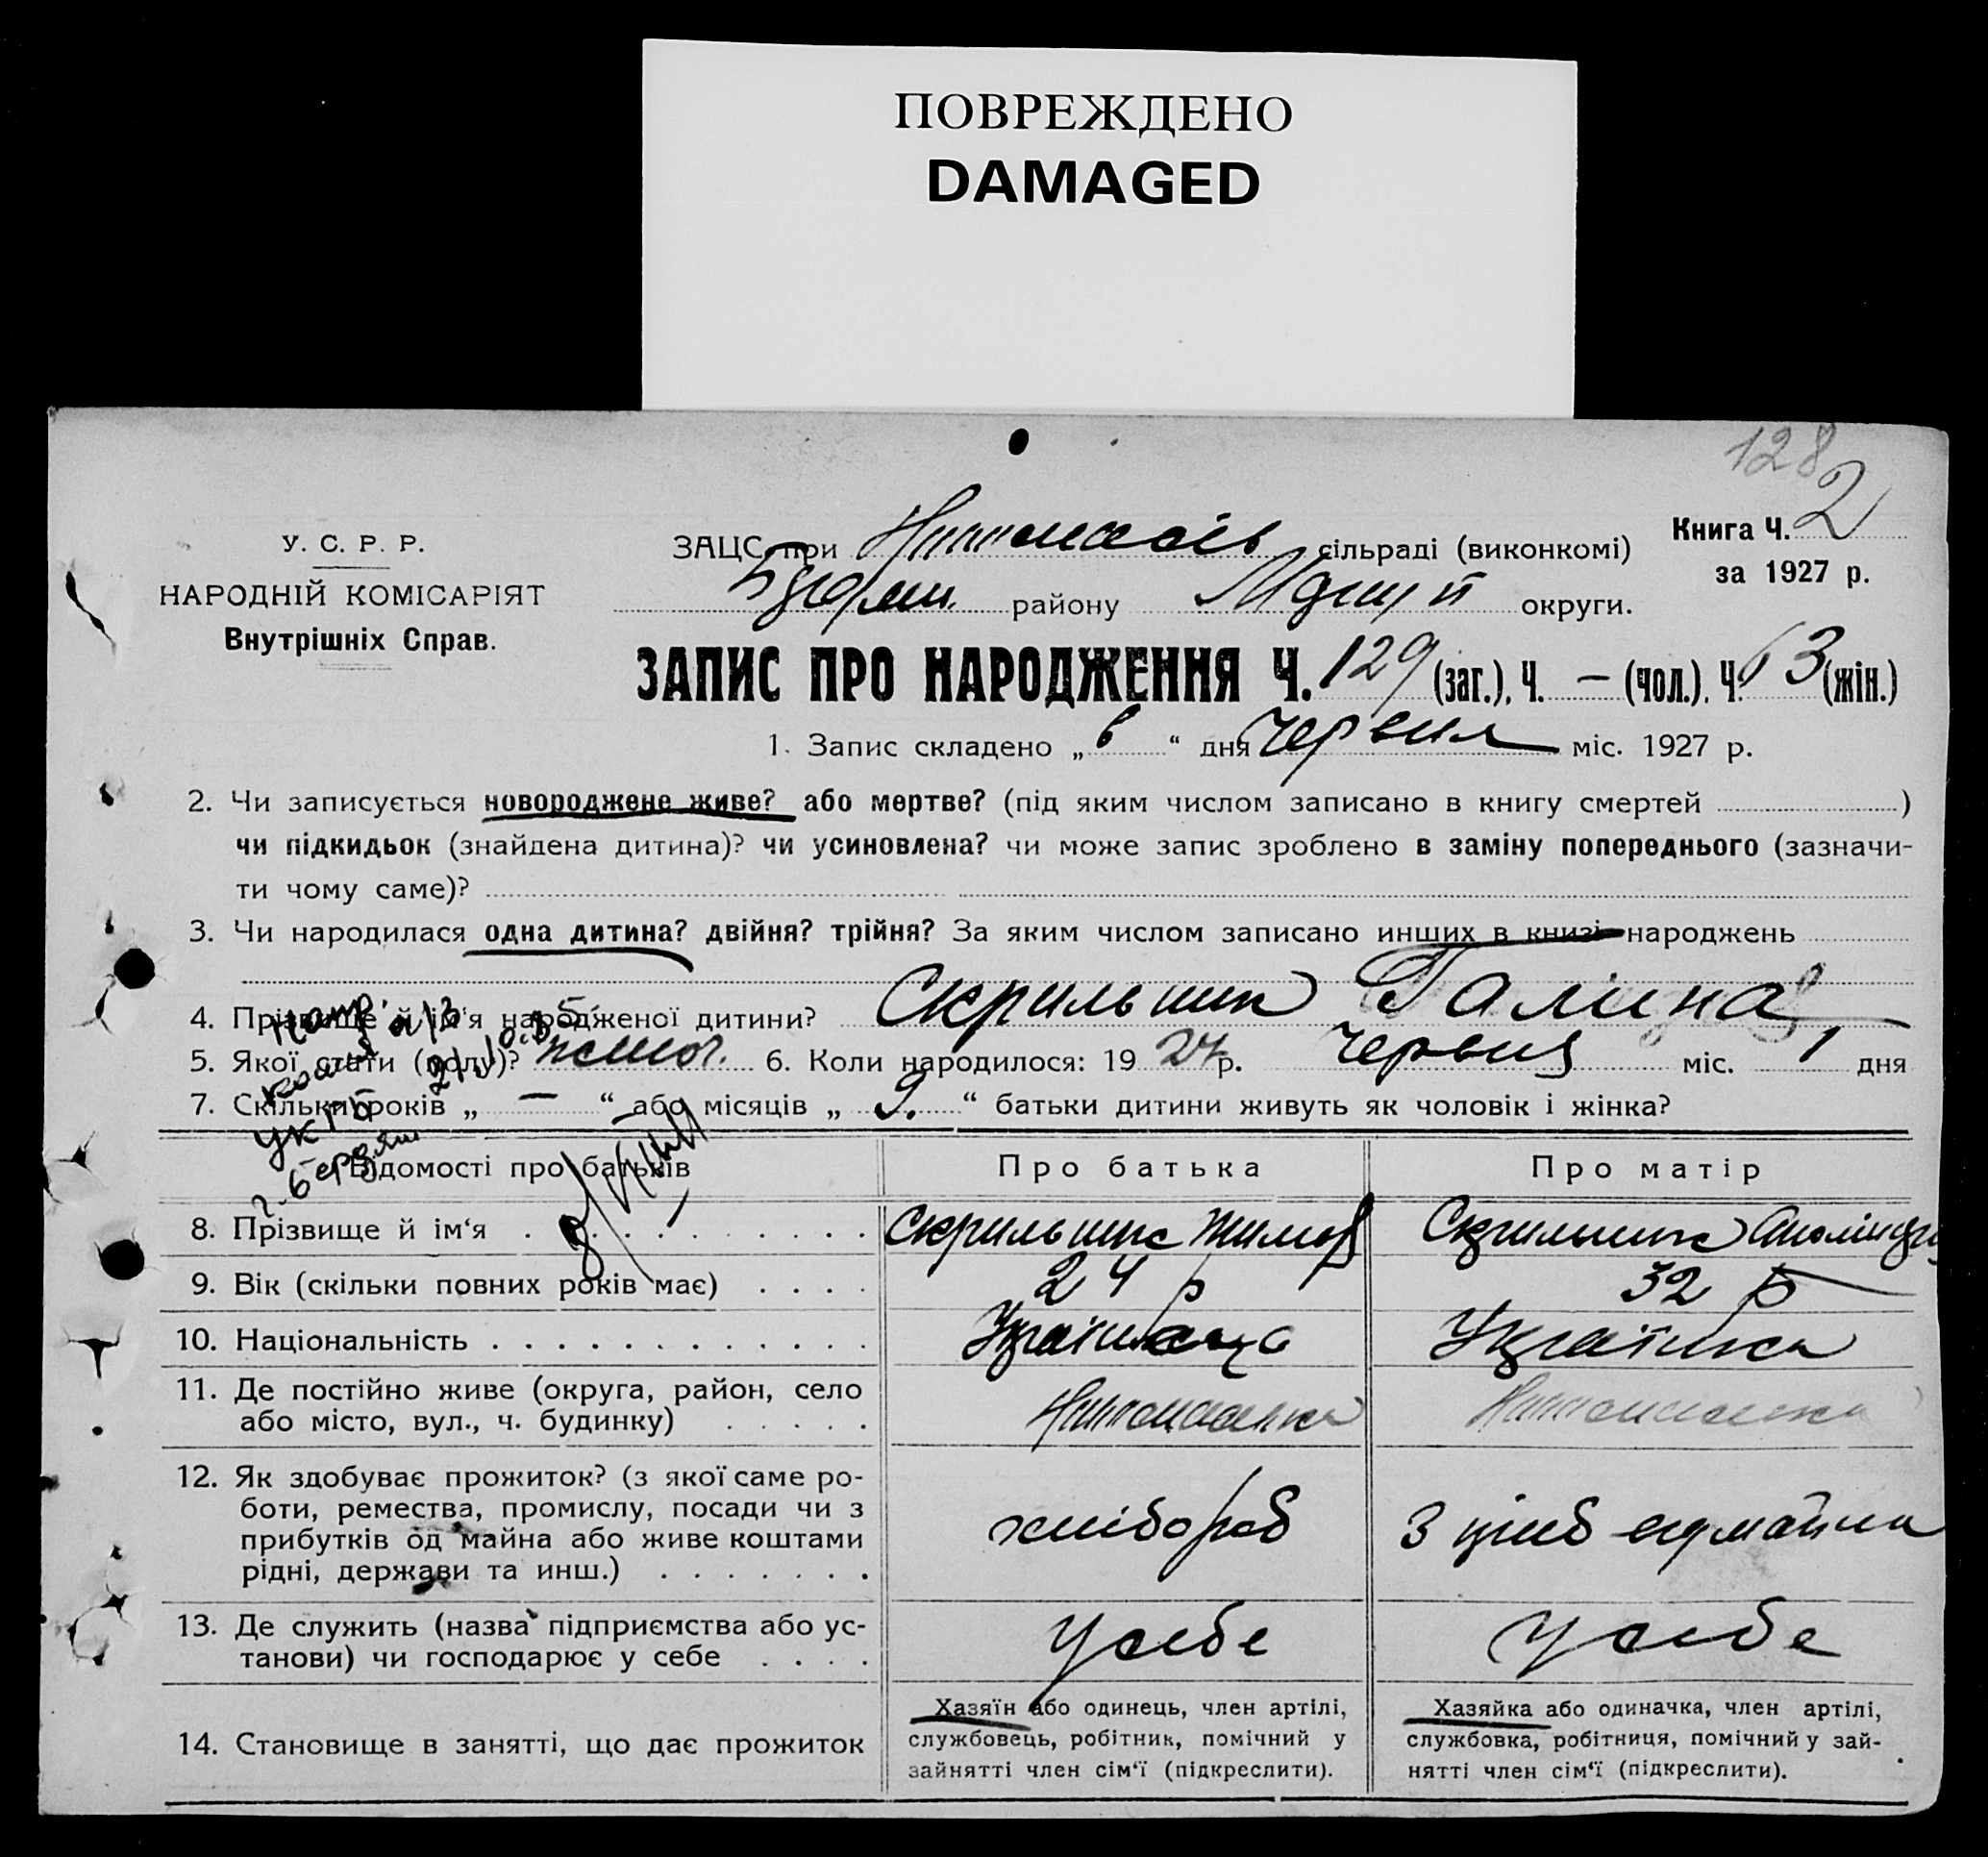 ПОВРЕЖДЕНО
DAMAGED
128
У. С. Р. Р.
НАРОДНІЙ КОМІСАРІЯТ
Внутрішніх Справ.
ЗАЦС при сільраді (виконкомі)
Книга Ч. 2
за 1927 р.
району округи.
ЗАПИС ПРО НАРОДЖЕННЯ Ч. 129 (заг.), Ч. — (чол.), Ч. 63 (жін.)
1. Запис складено „ 6 “ дня Червня міс. 1927 р.
2. Чи записується новороджене живе? або мертве? (під яким числом записано в книгу смертей )
чи підкидьок (знайдена дитина)? чи усиновлена? чи може запис зроблено в заміну попереднього (зазначи-
ти чому саме)?
3. Чи народилася одна дитина? двійня? трійня? За яким числом записано инших в книзі народжень
4. Прізвище й ім‘я народженої дитини? Скрильник Галина
5. Якої стати (полу)? жіноч. 6. Коли народилося: 19 27 р. Червня міс. 1 дня
7. Скільки років „ — “ або місяців „ 9. “ батьки дитини живуть як чоловік і жінка?
Відомості про батьків Про батька Про матір
8. Прізвище й ім‘я Скрильник Тимоф Скрильник
9. Вік (скільки повних років має) 24 р 32 р
10. Національність Українець Українка
11. Де постійно живе (округа, район, село
або місто, вул., ч. будинку)
12. Як здобуває прожиток? (з якої саме ро-
боти, ремества, промислу, посади чи з
прибутків од майна або живе коштами
рідні, держави та инш.)
хлібороб
13. Де служить (назва підприємства або ус-
танови) чи господарює у себе
У себе У себе
14. Становище в занятті, що дає прожиток
Хазяїн або одинець, член артілі,
службовець, робітник, помічний у
зайнятті член сім‘ї (підкреслити).
Хазяйка або одиначка, член артілі,
службовка, робітниця, помічний у зай-
нятті член сім‘ї (підкреслити).